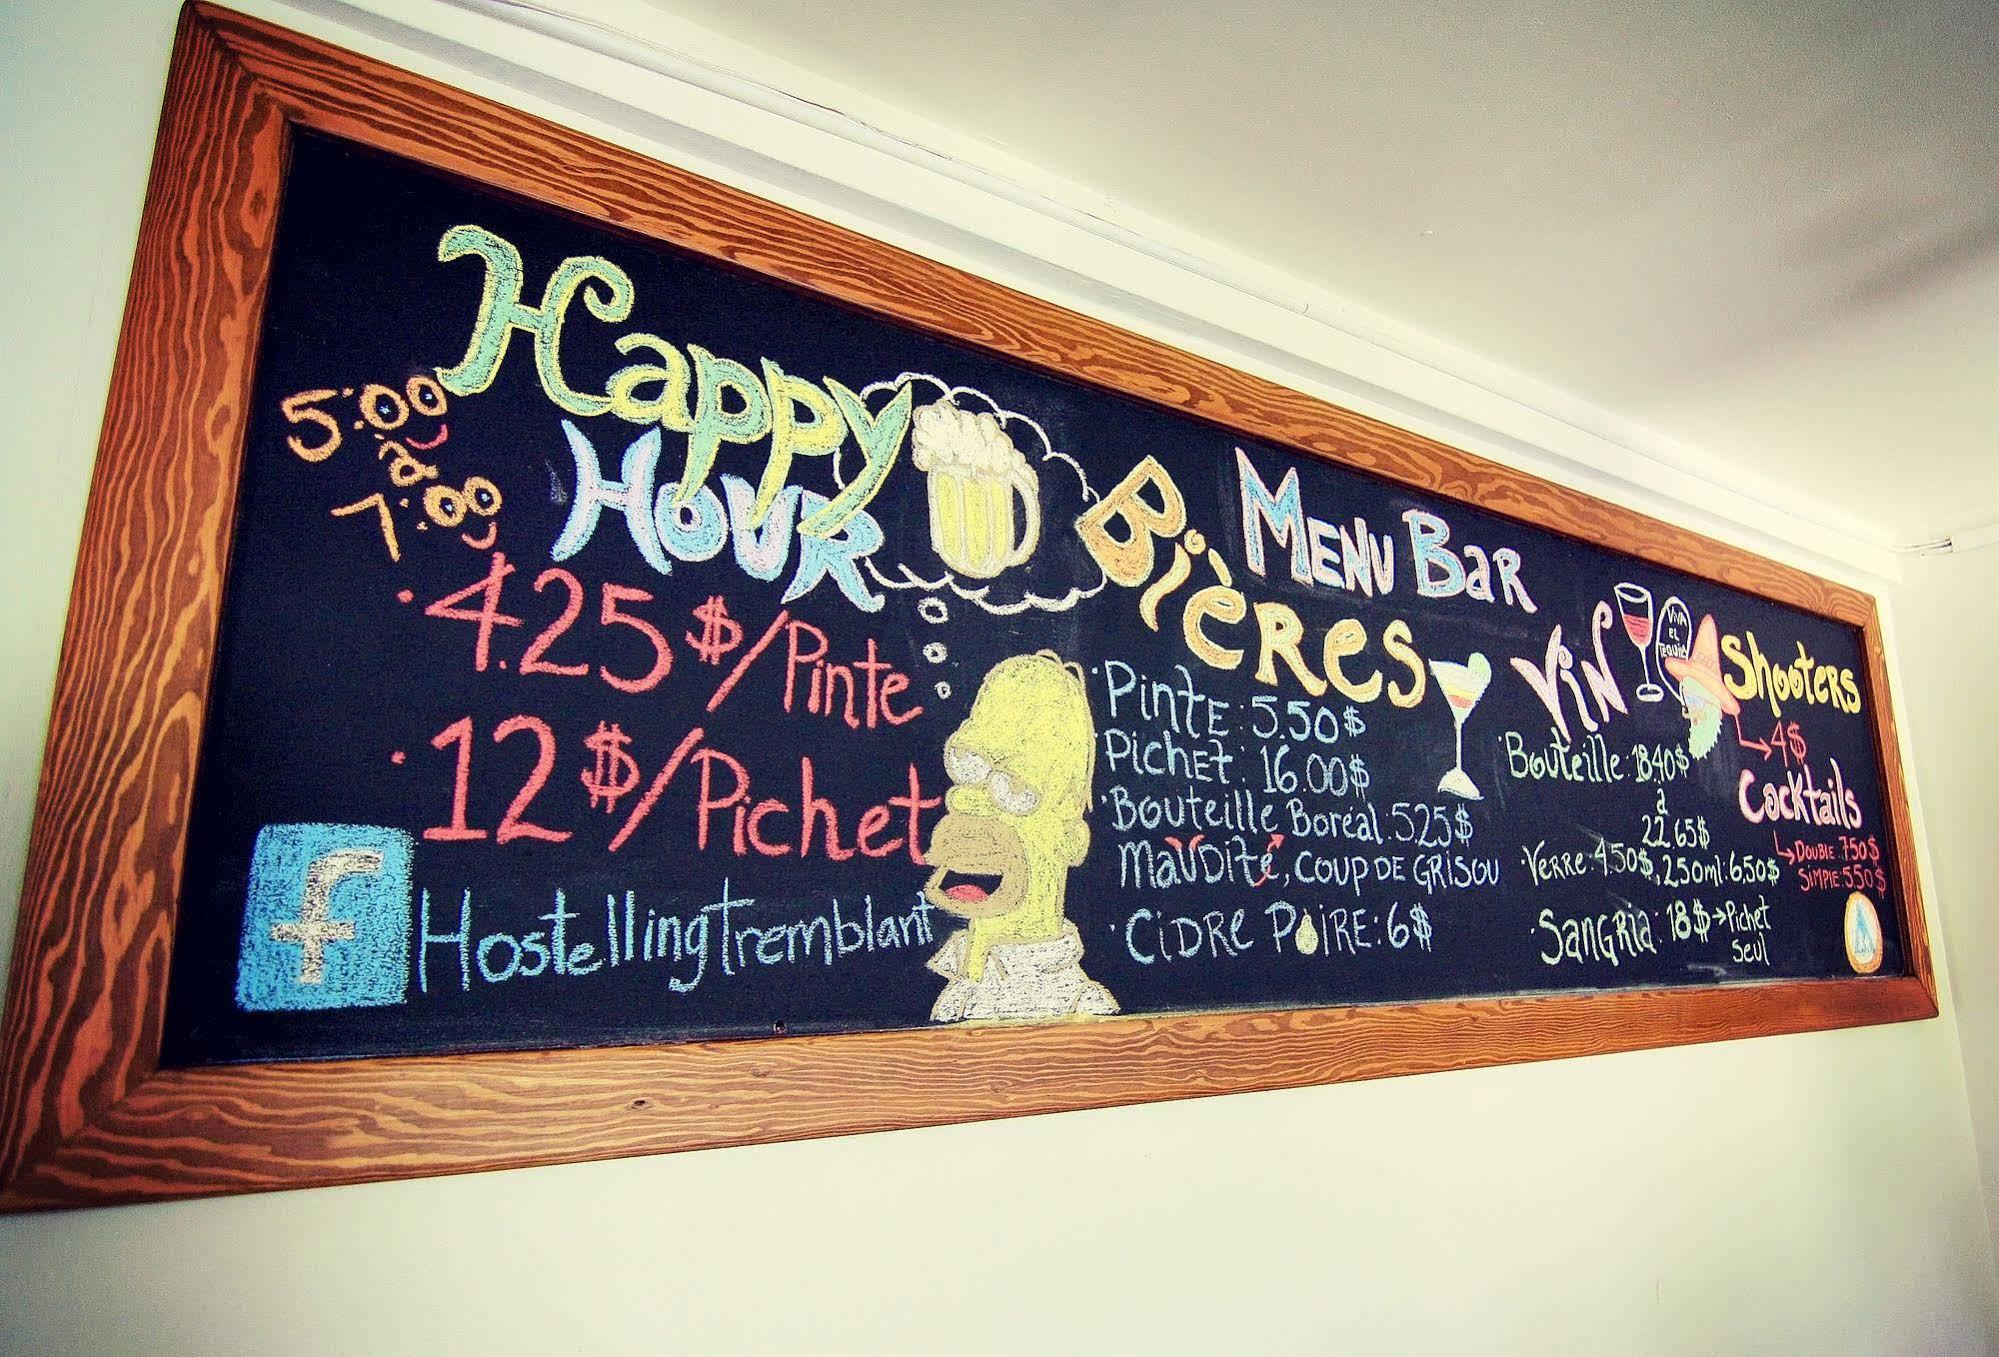 Happy
Hour
5:00
à
7:00
·4.25$/Pinte
·12$/Pichet
f HostellingTremblant
Menu Bar
Bières
·Pinte: 5.50$
·Pichet: 16.00$
·Bouteille Boréal: 5.25$
Maudite, Coup de Grisou
·Cidre Poire: 6$
Vin
·Bouteille: 18.40$
à
22.65$
·Verre: 4.50$, 250ml: 6.50$
·Sangria: 18$→Pichet
Seul
Viva
el
Tequila
Shooters
→4$
Cocktails
→Double: 7.50$
Simple: 5.50$